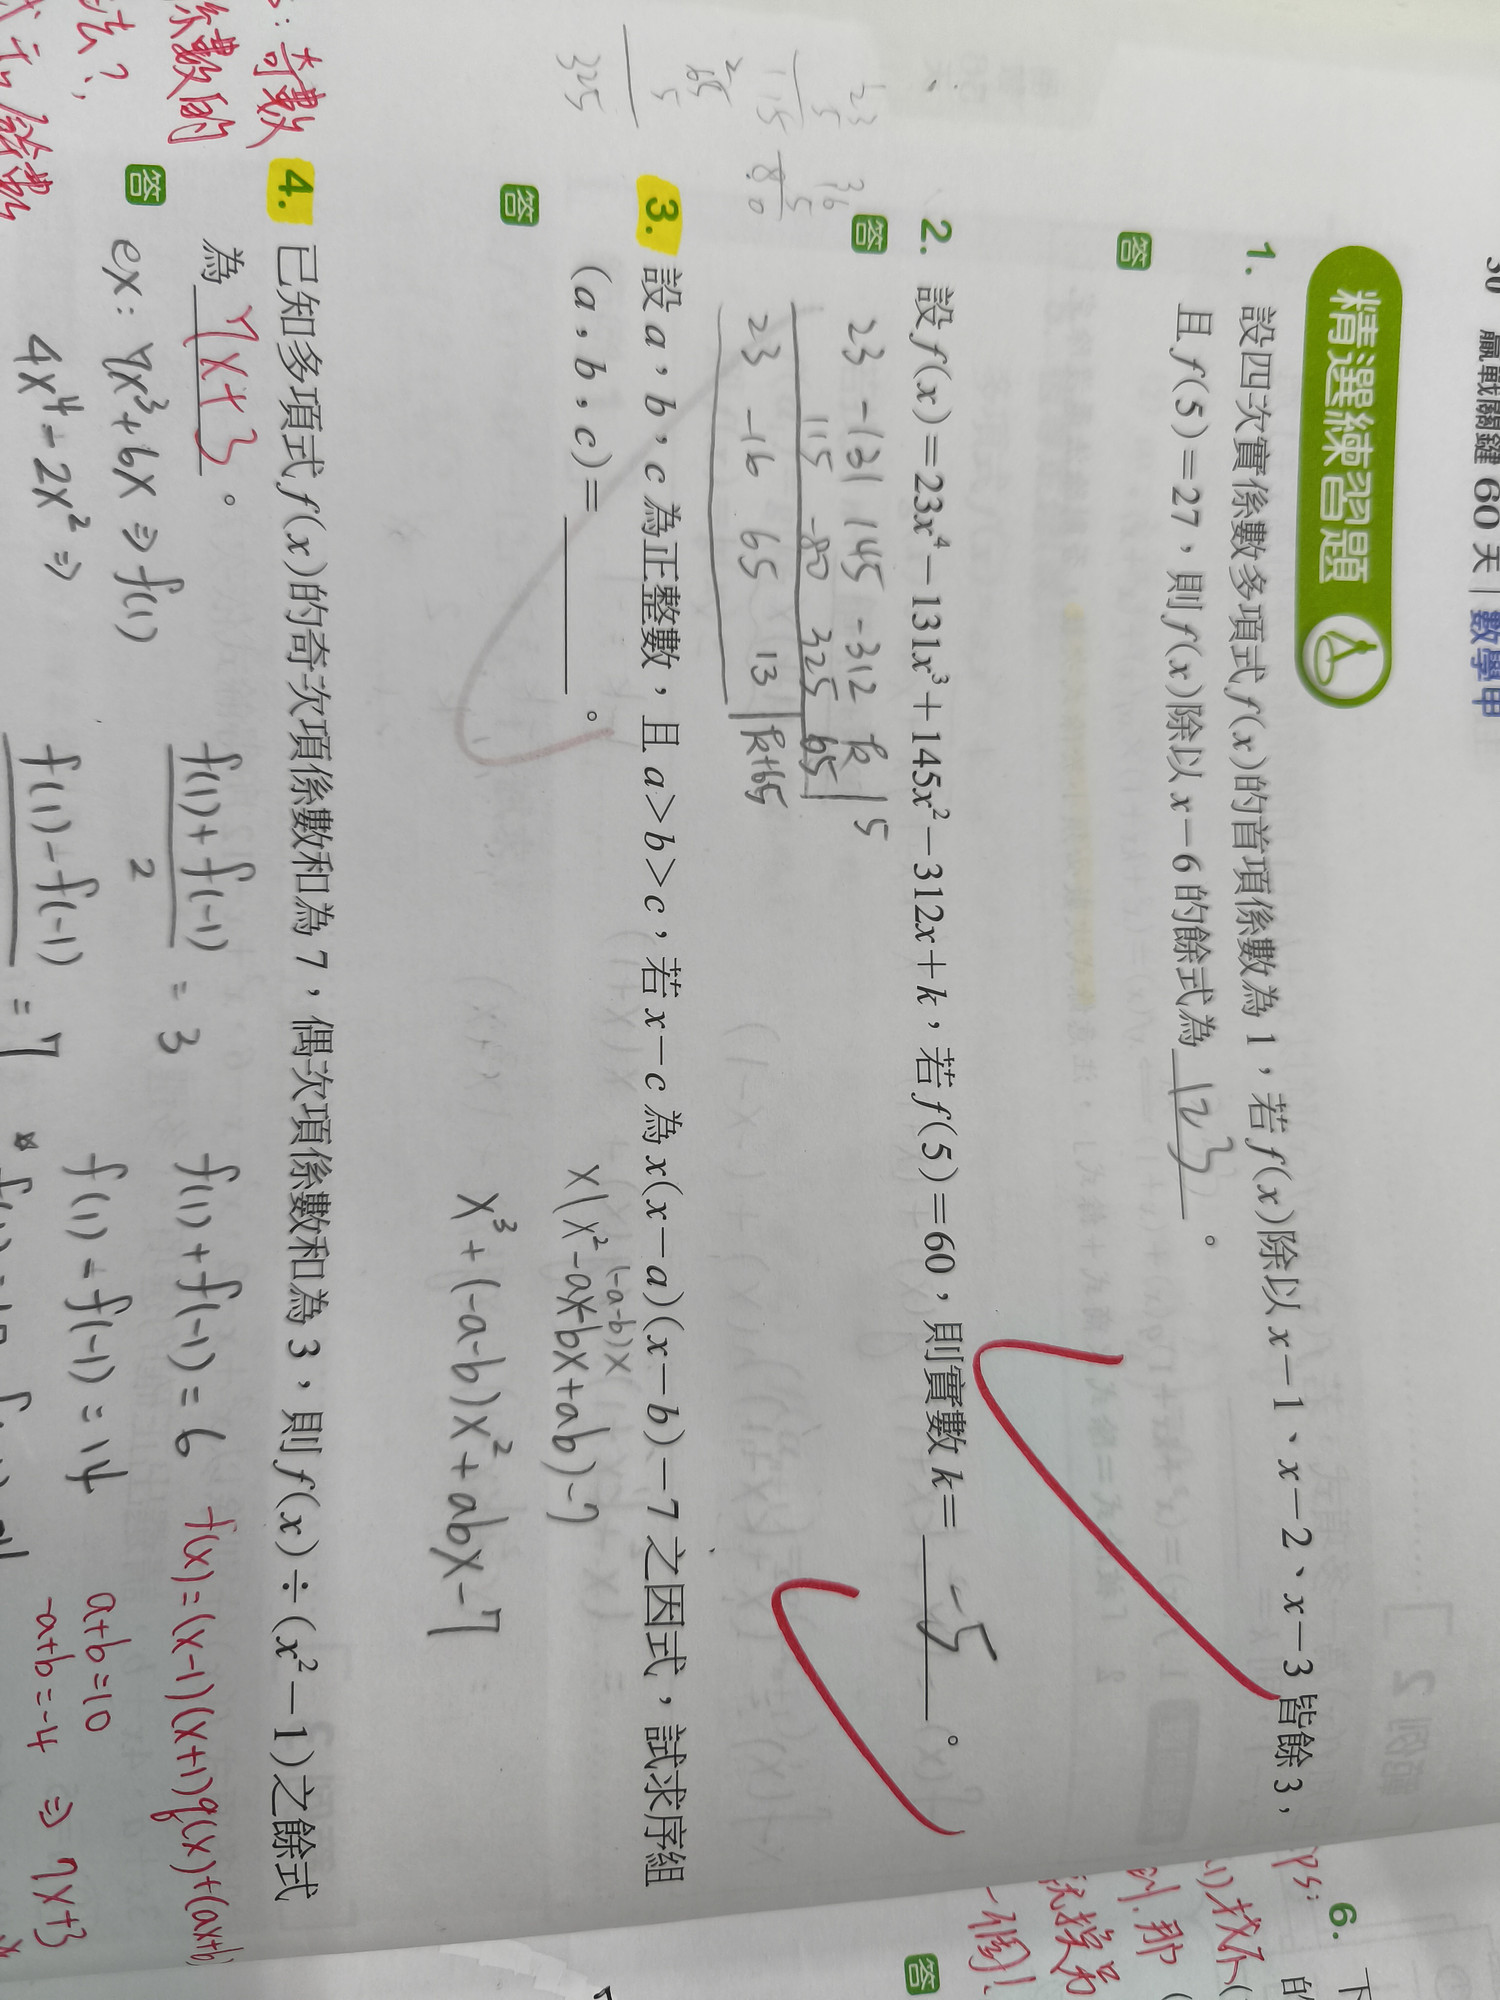 30 贏戰關鍵 60 天 | 數學甲
精選練習題
1. 設四次實係數多項式 f(x) 的首項係數為 1，若 f(x) 除以 x－1、x－2、x－3 皆餘 3，
且 f(5)＝27，則 f(x) 除以 x－6 的餘式為 123 。
答
2. 設 f(x)＝23x⁴－131x³＋145x²－312x＋k，若 f(5)＝60，則實數 k＝ -5 。
答
23 -131 145 -312 k | 5
115 -80 325 65
23 -16 65 13 | k+65
23
5
115
36
5
80
2
65
5
325
3. 設 a，b，c 為正整數，且 a＞b＞c，若 x－c 為 x(x－a)(x－b)－7 之因式，試求序組
(a，b，c)＝ 。
答
(-a-b)x
x(x²-ax-bx+ab)-7
x³+(-a-b)x²+abx-7
4. 已知多項式 f(x) 的奇次項係數和為 7，偶次項係數和為 3，則 f(x)÷(x²－1) 之餘式
為 7x+3 。
答
ex: 4x³+6x ⇒ f(1)
4x⁴-2x² ⇒
f(1)+f(-1)
2
= 3
f(1)-f(-1)
= 7
f(1)+f(-1)=6
f(1)-f(-1)=14
f(x)=(x-1)(x+1)q(x)+(ax+b)
a+b=10
-a+b=-4 ⇒ 7x+3
: 奇數
係數的
法?
6. 下
的
ps:
找不
那
就換另
一個!
答